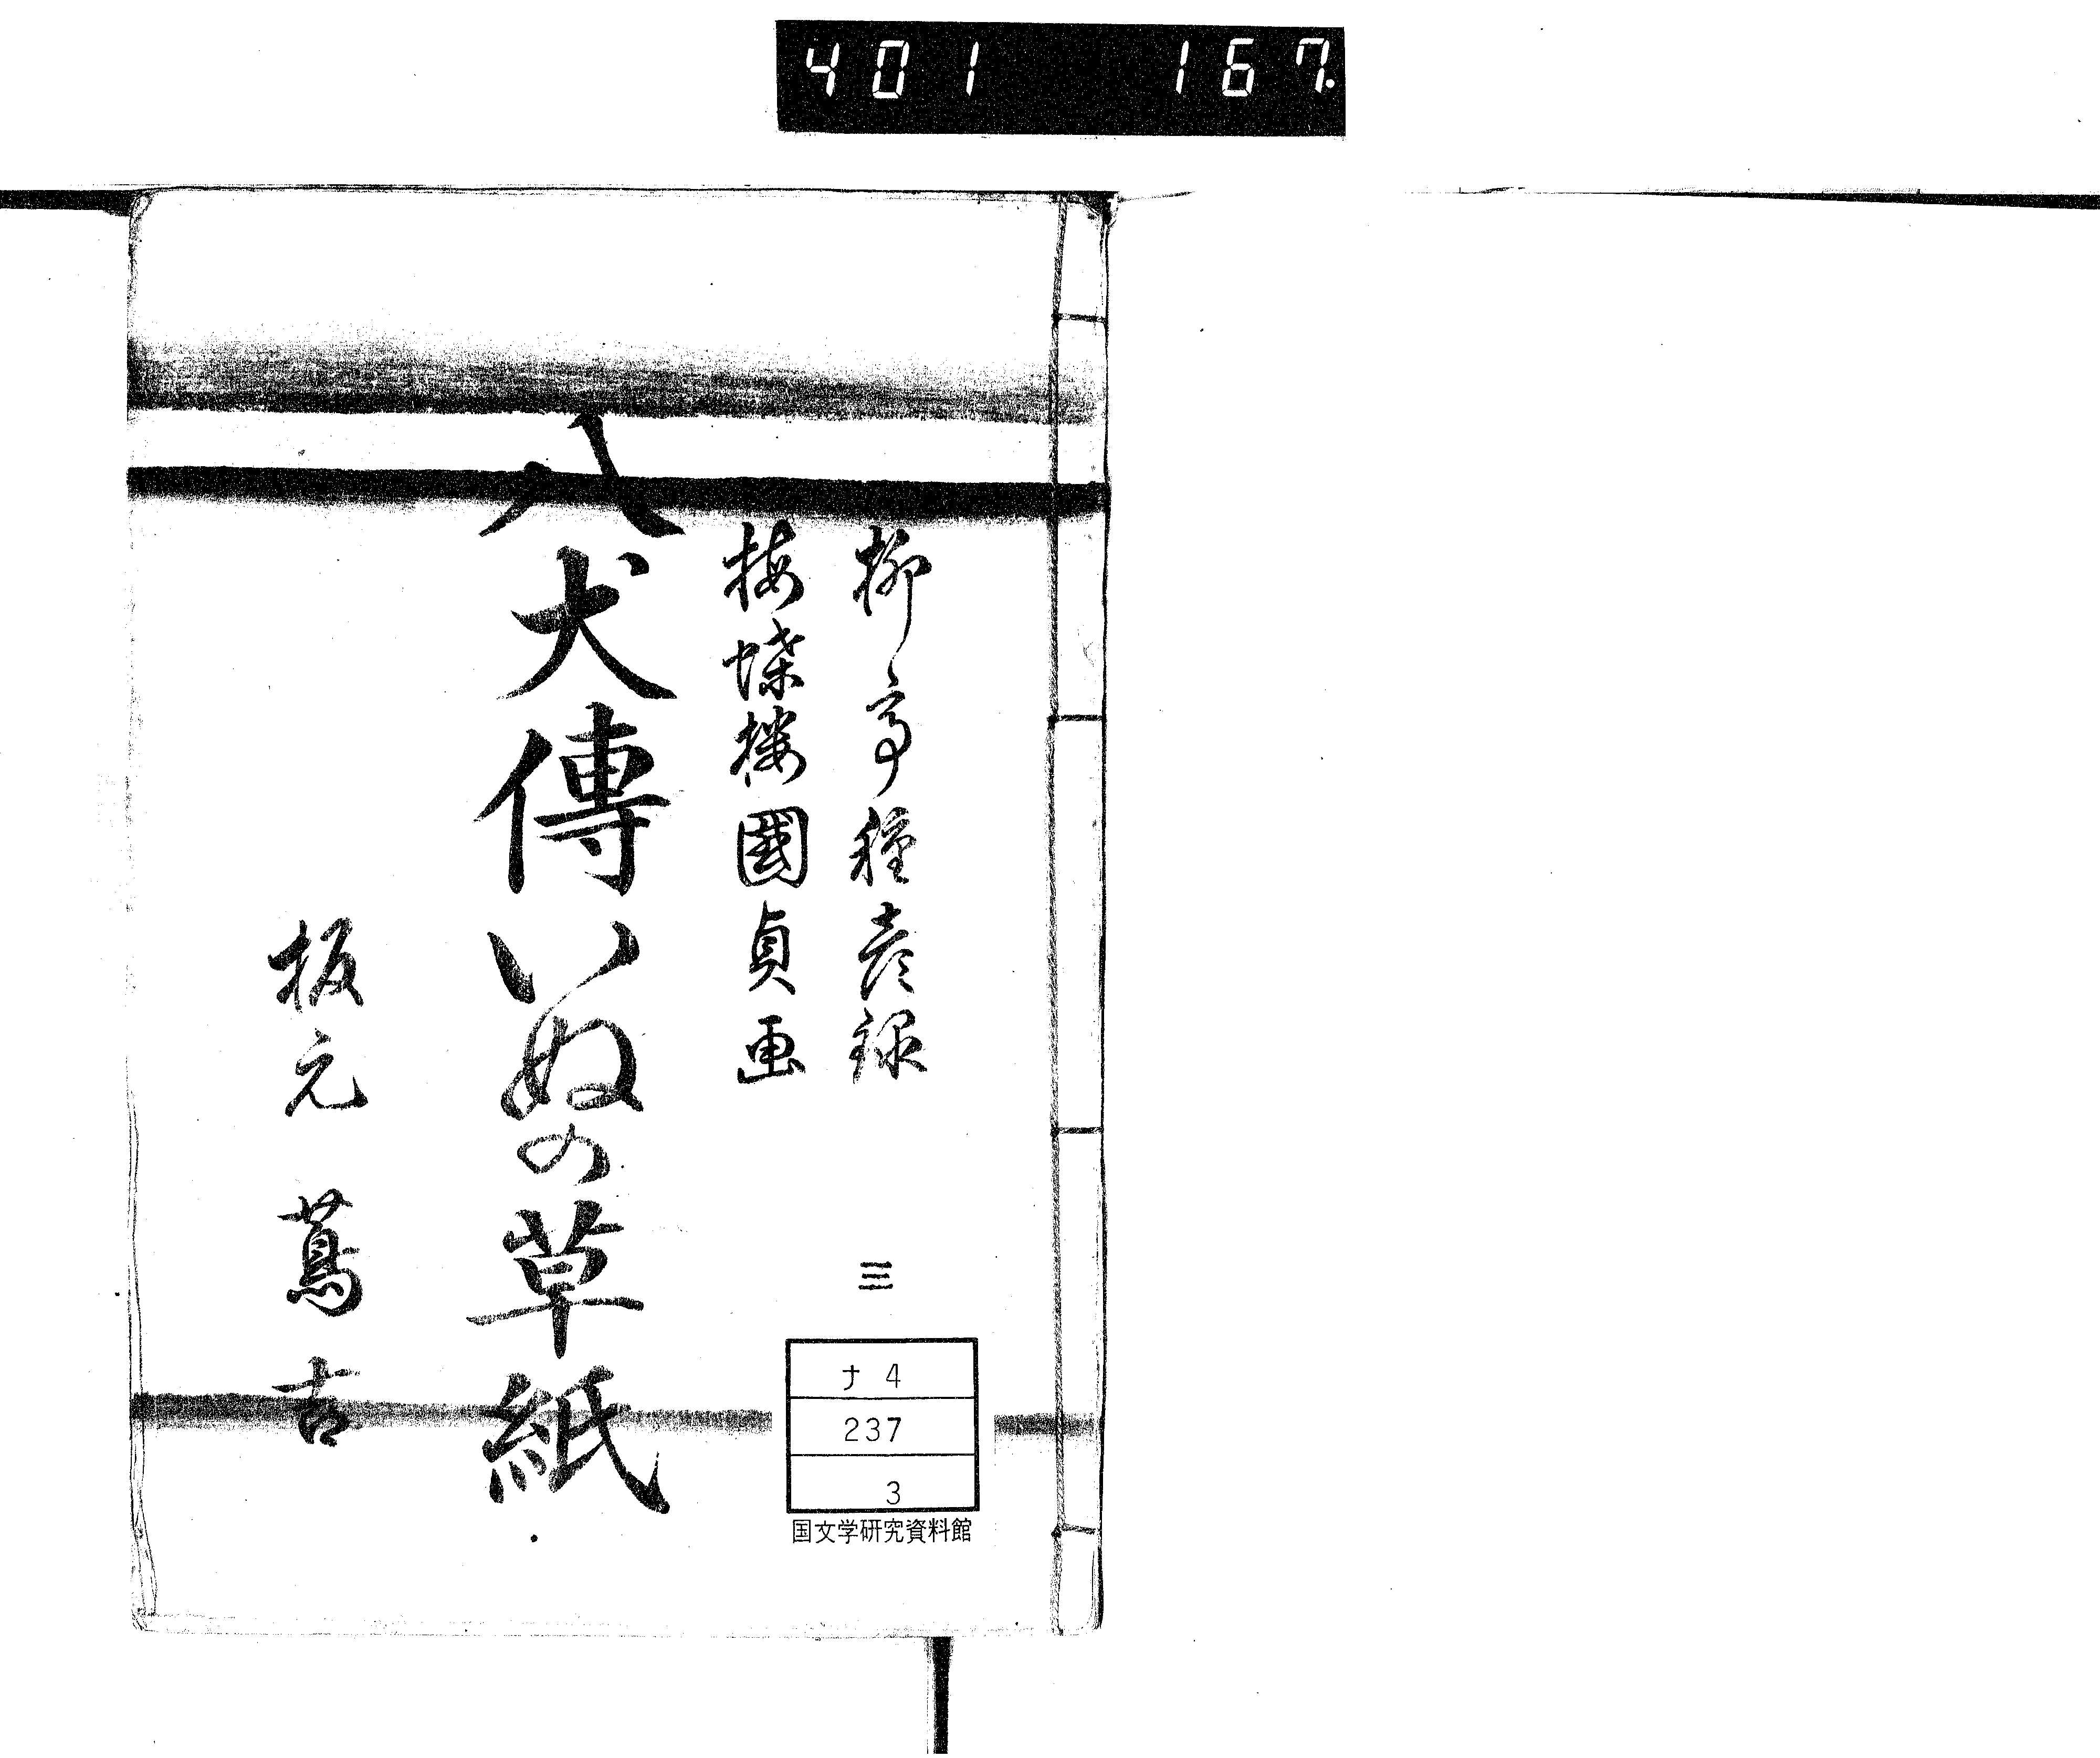 401 167.
柳亭種彦録
梅蝶楼國貞画
八犬傳いぬの草紙
板元 蔦吉
三
ナ 4
237
3
国文学研究資料館